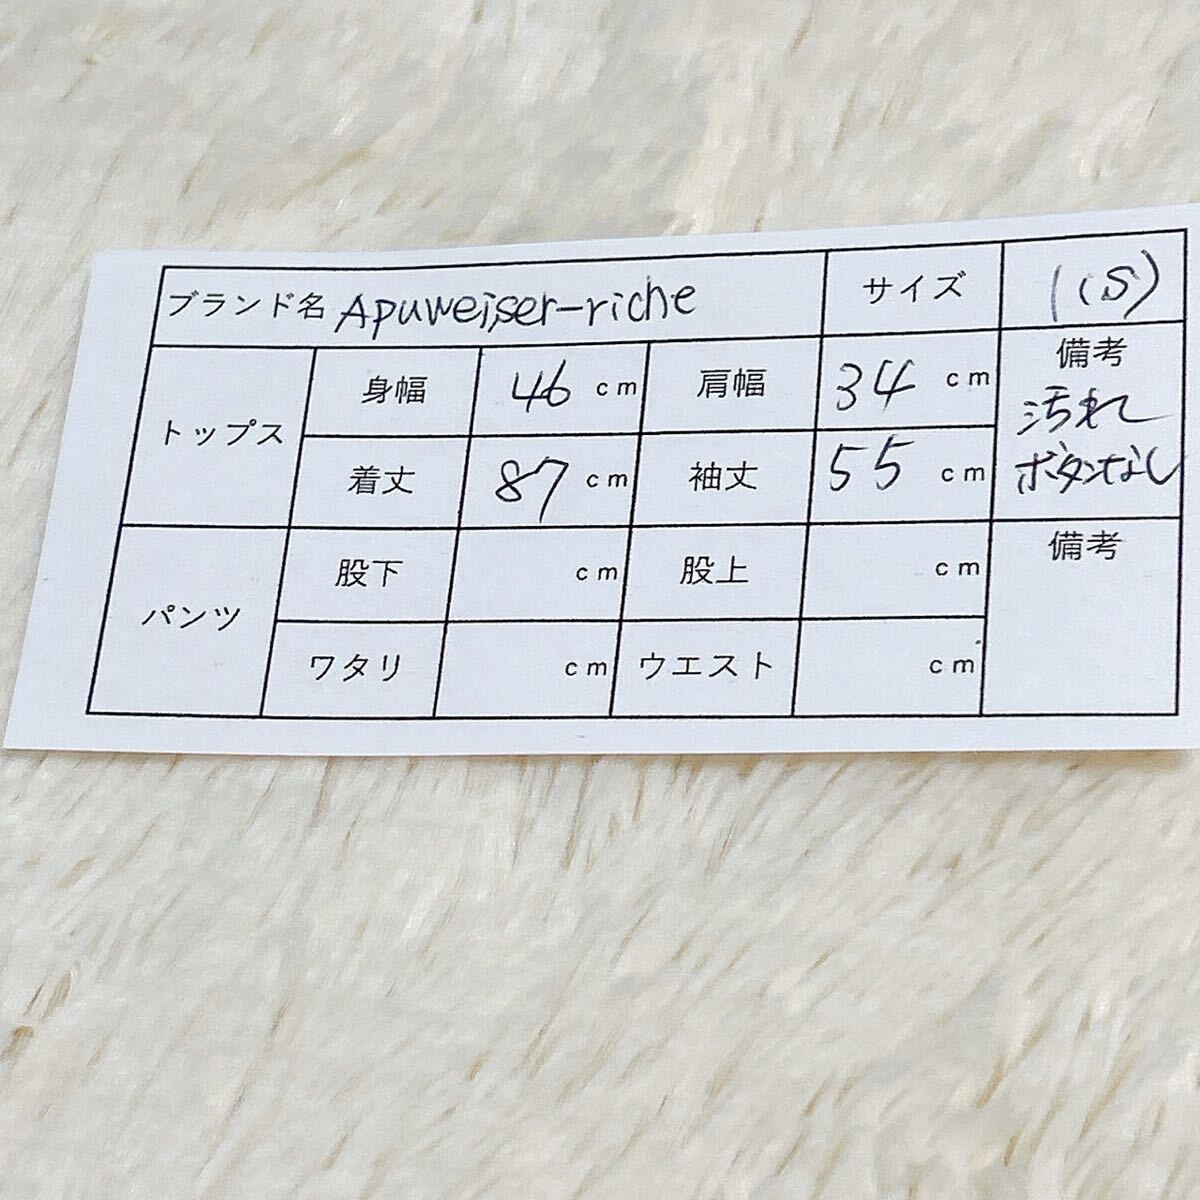 ブランド名 Apuweiser-riche サイズ 1(S)
トップス 身幅 46 cm 肩幅 34 cm 備考
着丈 87 cm 袖丈 55 cm 汚れ
ボタンなし
パンツ 股下 cm 股上 cm 備考
ワタリ cm ウエスト cm